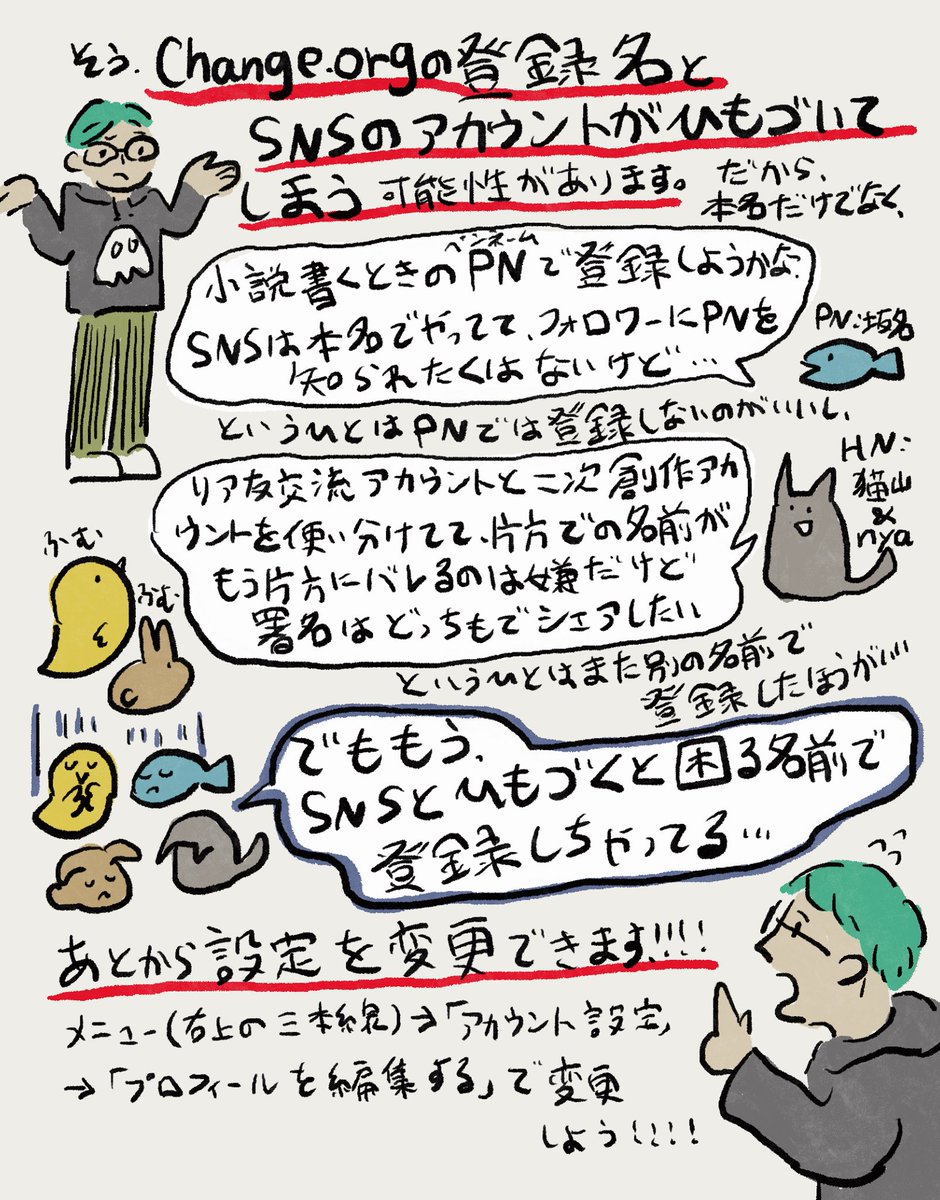 そう、Change.orgの登録名と
SNSのアカウントがひもづいて
しまう可能性があります。だから、
本名だけでなく、
ペンネーム
小説書くときのPNで登録しようかな。
SNSは本名でやってて、フォロワーにPNを
知られたくはないけど…
PN:坂名
というひとはPNでは登録しないのがいいし、
リア友交流アカウントと二次創作アカ
ウントを使い分けてて、片方での名前が
もう片方にバレるのは嫌だけど
署名はどっちもでシェアしたい
HN:
猫山
&
nya
ふーむ
ふむ
というひとはまた別の名前で
登録したほうがいい
でももう、
SNSとひもづくと困る名前で
登録しちゃってる…
あとから設定を変更できます!!!!
メニュー(右上の三本線)→「アカウント設定」
→「プロフィールを編集する」で変更
しよう!!!!